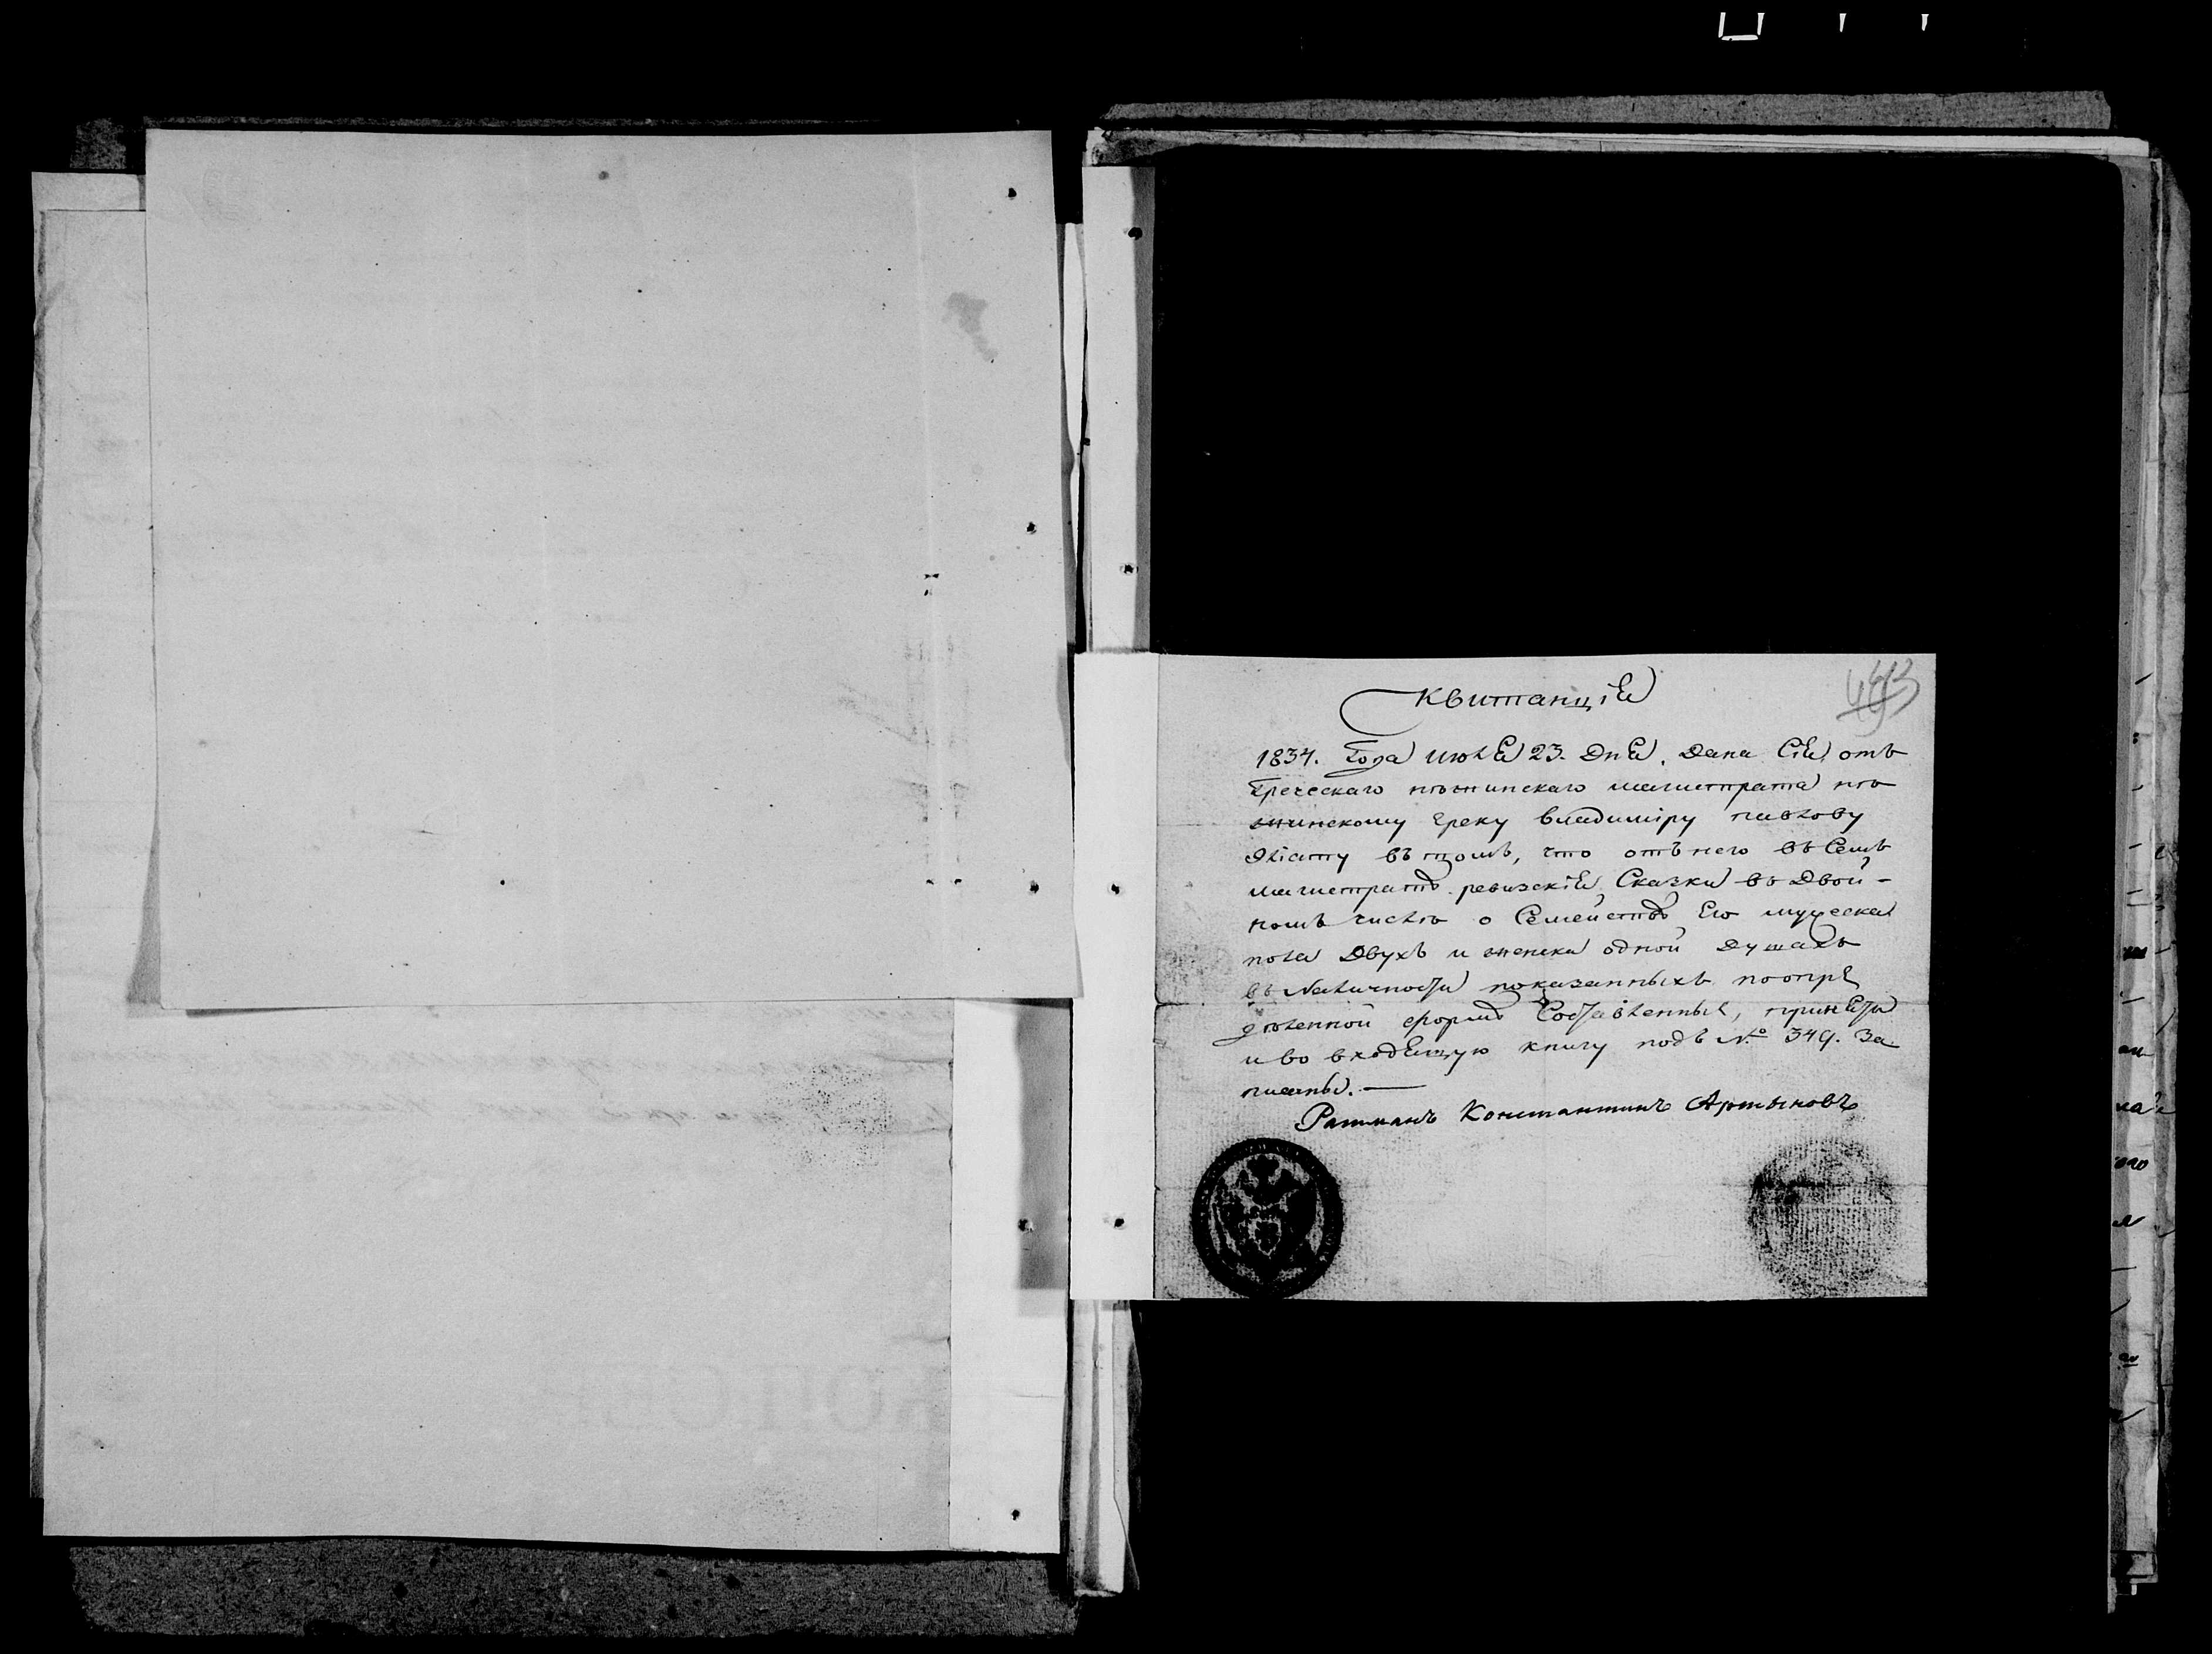 Квитанція
1834. Года июля 23. Дня, Дана Сія отъ
Греческаго нѣжинскаго магистрата нѣ
жинскому греку владиміру павлову
въ томъ, что отъ него въ Семъ
магистратѣ ревизскія Сказки въ Двой-
номъ числѣ о Семействѣ Его мужеска
пола Двухъ и женска одной Душахъ
въ Наличности показанныхъ по опре
дѣленной формѣ Составленные, приняты
и во входящую книгу подъ №. 349. За
писаны.
Ратманъ Константинъ Артыновъ